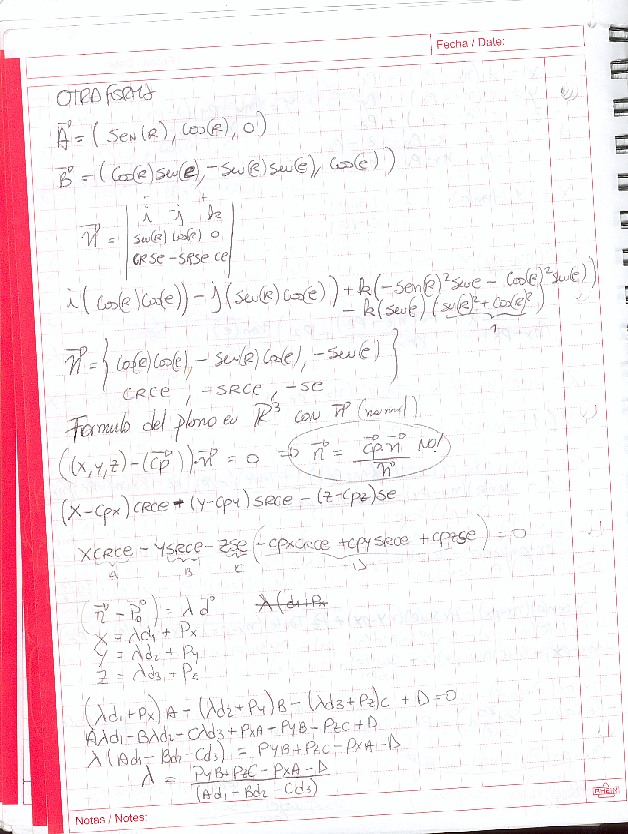 Fecha / Date:
OTRA FORMA
A⃗ = (SEN(R), COS(R), 0)
B⃗ = (Cos(R) sen(e), -Sen(R) sen(e), Cos(e))
- +
i j k
n⃗ = | sen(R) cos(R) 0 |
| CRSE -SRSE CE |
i(Cos(R)Cos(e)) - j(sen(R)cos(e)) + k(-sen(R)² sen e - Cos(R)² sen(e))
- k(sen(e) (sen(R)² + cos(R)²)
1
n⃗ = { Cos(R)Cos(e), -sen(R)Cos(e), -sen(e) }
CRCE, -SRCE, -SE
Formula del plano en R³ con n⃗ (normal)
((x,y,z) - (cp⃗))·n⃗ = 0 ⇒ n⃗ = cp⃗·n⃗ / n⃗ NO!
(X-Cpx)CRCE + (Y-Cpy)SRCE - (Z-Cpz)SE
XCRCE - YSRCE - ZSE (-CpxCRCE + CpySRCE + CpzSE) = 0
A B C D
(n⃗ - P⃗o) = λd⃗
X = λd1 + Px
Y = λd2 + Py
Z = λd3 + Pz
(λd1+Px)A - (λd2+Py)B - (λd3+Pz)C + D = 0
Aλd1 - Bλd2 - Cλd3 + PxA - PyB - PzC + D
λ(Ad1 - Bd2 - Cd3) = PyB + PzC - PxA - D
λ = PyB + PzC - PxA - D
(Ad1 - Bd2 - Cd3)
RHEIN
Notas / Notes: